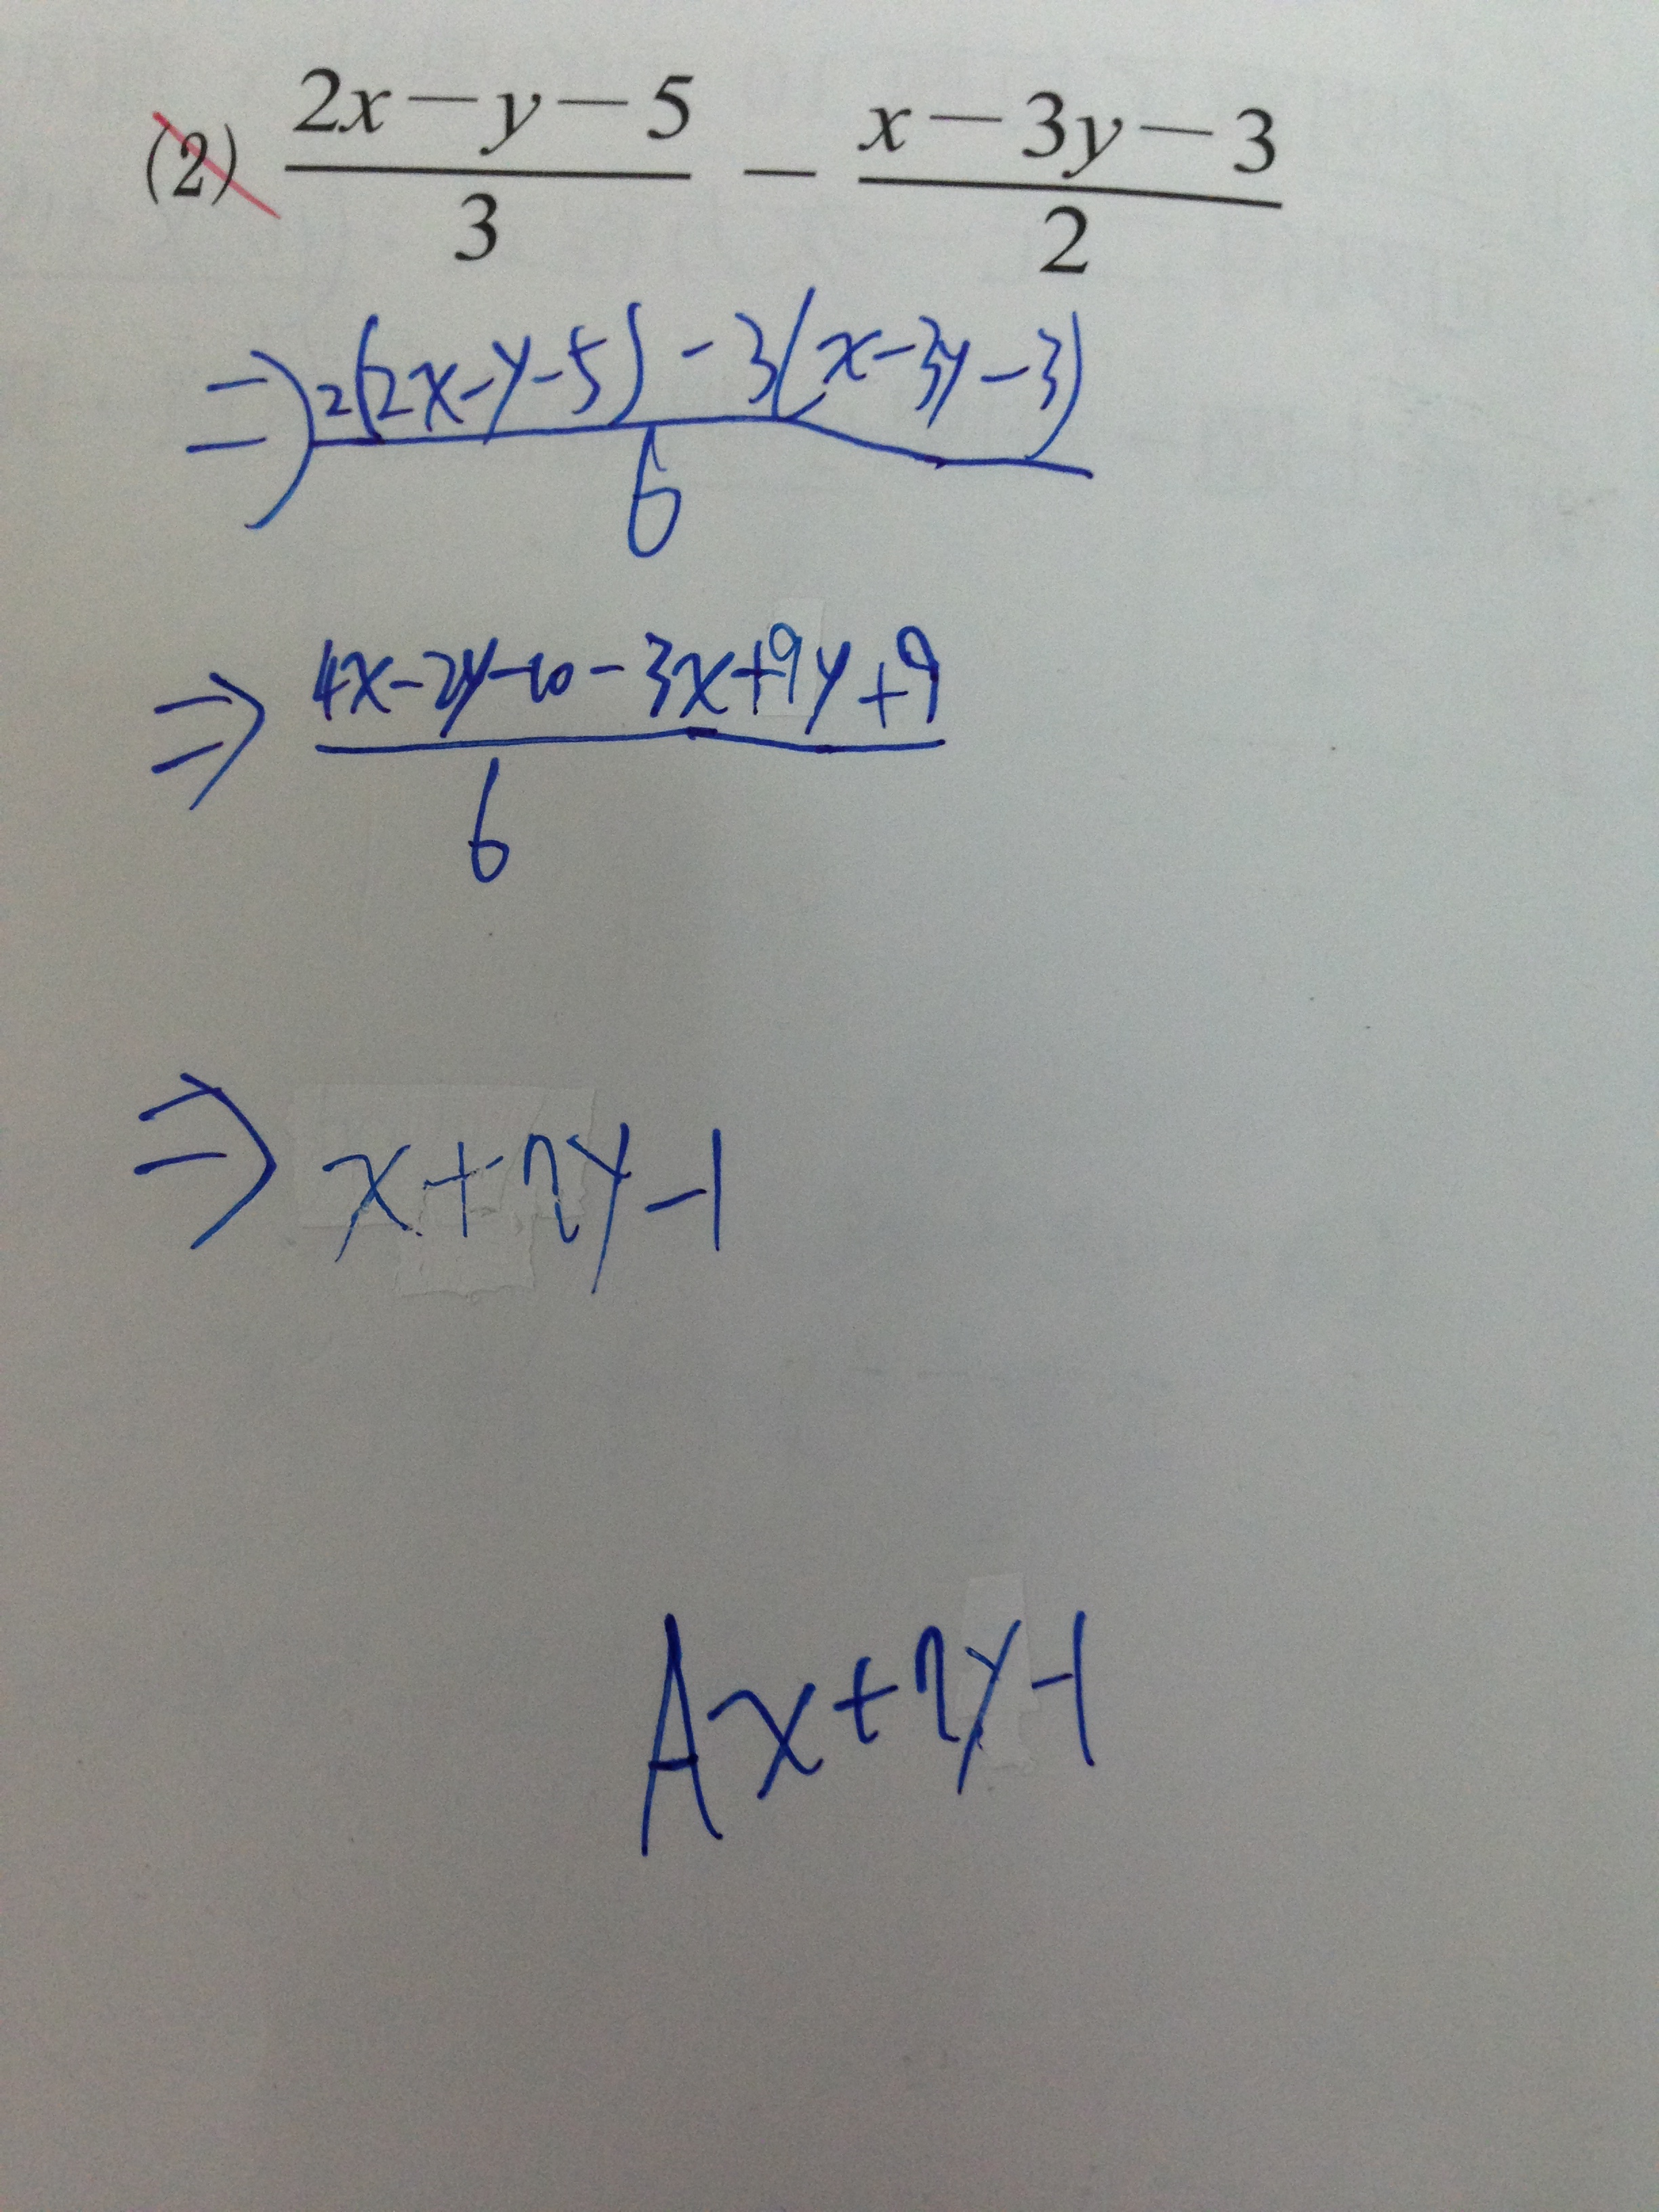 (2) \frac{2x-y-5}{3} - \frac{x-3y-3}{2}
⇒ \frac{2(2x-y-5)-3(x-3y-3)}{6}
⇒ \frac{4x-2y-10-3x+9y+9}{6}
⇒ x+7y-1
A x+7y-1